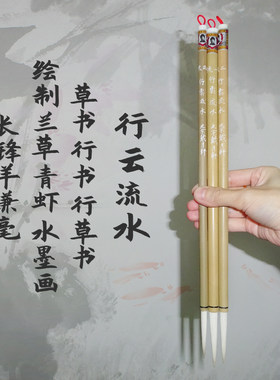 行云流水
草书行书行草书
绘制兰草青虾水墨画
长锋羊兼毫